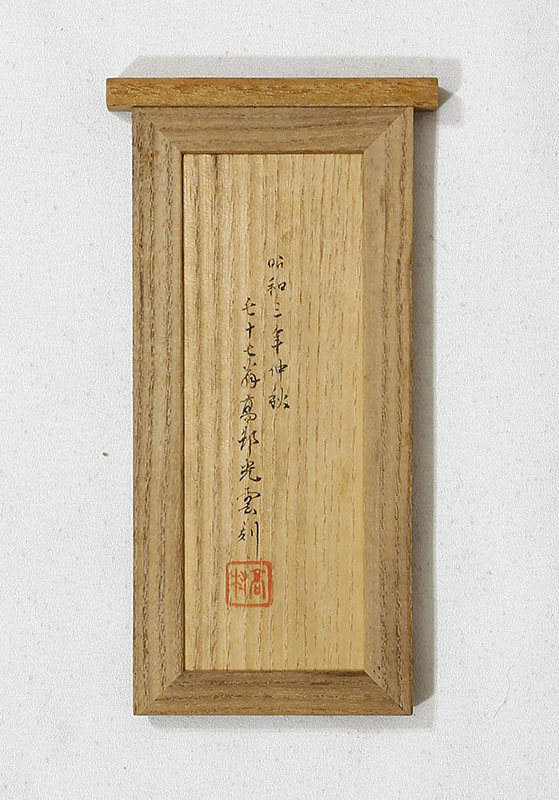 昭和三年仲秋
七十七翁高邨光雲刻
高村